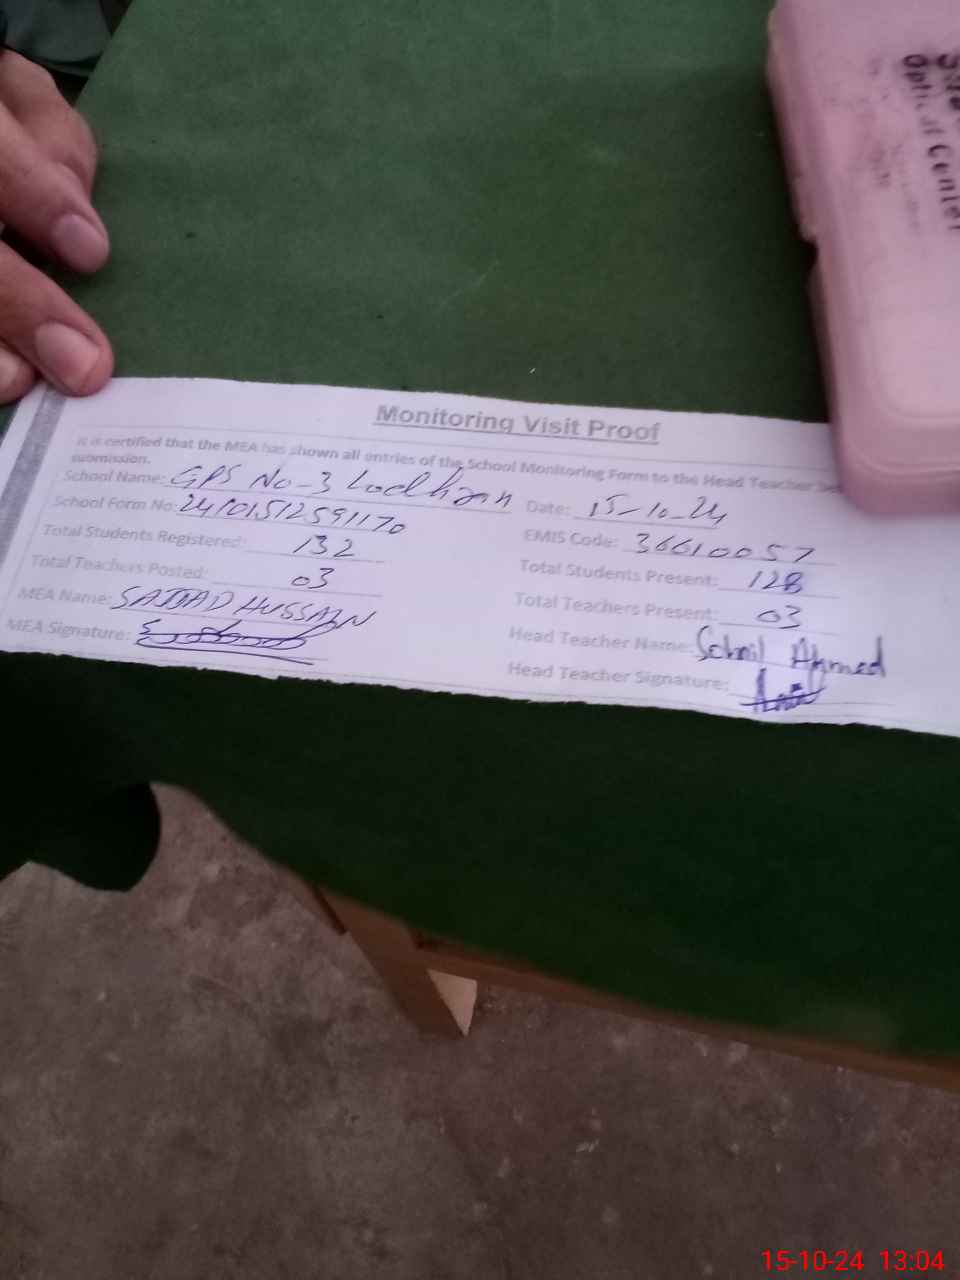 Monitoring Visit Proof
It is certified that the MEA has shown all entries of the School Monitoring Form to the Head Teacher
submission.
School Name: GPS No-3 Lodhran
Date: 15-10-24
School Form No: 24101512591170
EMIS Code: 36610057
Total Students Registered: 132
Total Students Present: 128
Total Teachers Posted: 03
Total Teachers Present: 03
MEA Name: SAJJAD HUSSAIN
Head Teacher Name: Ahmed
MEA Signature:
Head Teacher Signature:
Optical Center
15-10-24 13:04